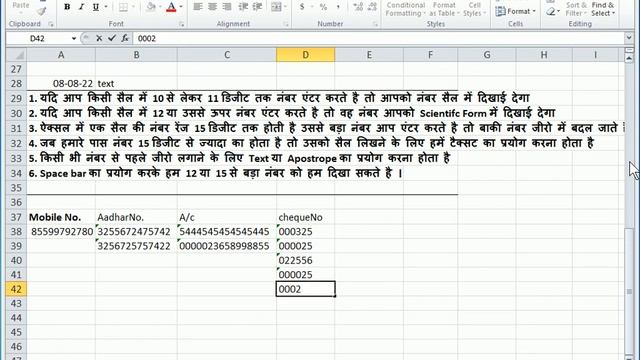 Clipboard Font Alignment Number Styles Cells Editing
Conditional Formatting Format as Table Cell Styles Format Sort & Filter Find & Select
D42 fx 0002
A B C D E F G H I
27
28 08-08-22 text
29 1. यदि आप किसी सैल में 10 से लेकर 11 डिजीट तक नंबर एंटर करते है तो आपको नंबर सैल में दिखाई देगा
30 2. यदि आप किसी सैल में 12 या उससे ऊपर नंबर एंटर करते है तो वह नंबर आपको Scientifc Form में दिखाई देगा
31 3. ऐक्सल में एक सैल की नंबर रेंज 15 डिजीट तक होती है उससे बड़ा नंबर आप एंटर करते है तो बाकी नंबर जीरो में बदल जाते
32 4. जब हमारे पास नंबर 15 डिजीट से ज्यादा का होता है तो उसको सैल लिखने के लिए हमें टैक्सट का प्रयोग करना होता है
33 5. किसी भी नंबर से पहले जीरो लगाने के लिए Text या Apostrope का प्रयोग करना होता है
34 6. Space bar का प्रयोग करके हम 12 या 15 से बड़ा नंबर को हम दिखा सकते है ।
35
36
37 Mobile No. AadharNo. A/c chequeNo
38 85599792780 3255672475742 5444545454545445 000325
39 3256725757422 0000023658998855 000025
40 022556
41 000025
42 0002
43
44
45
46
47